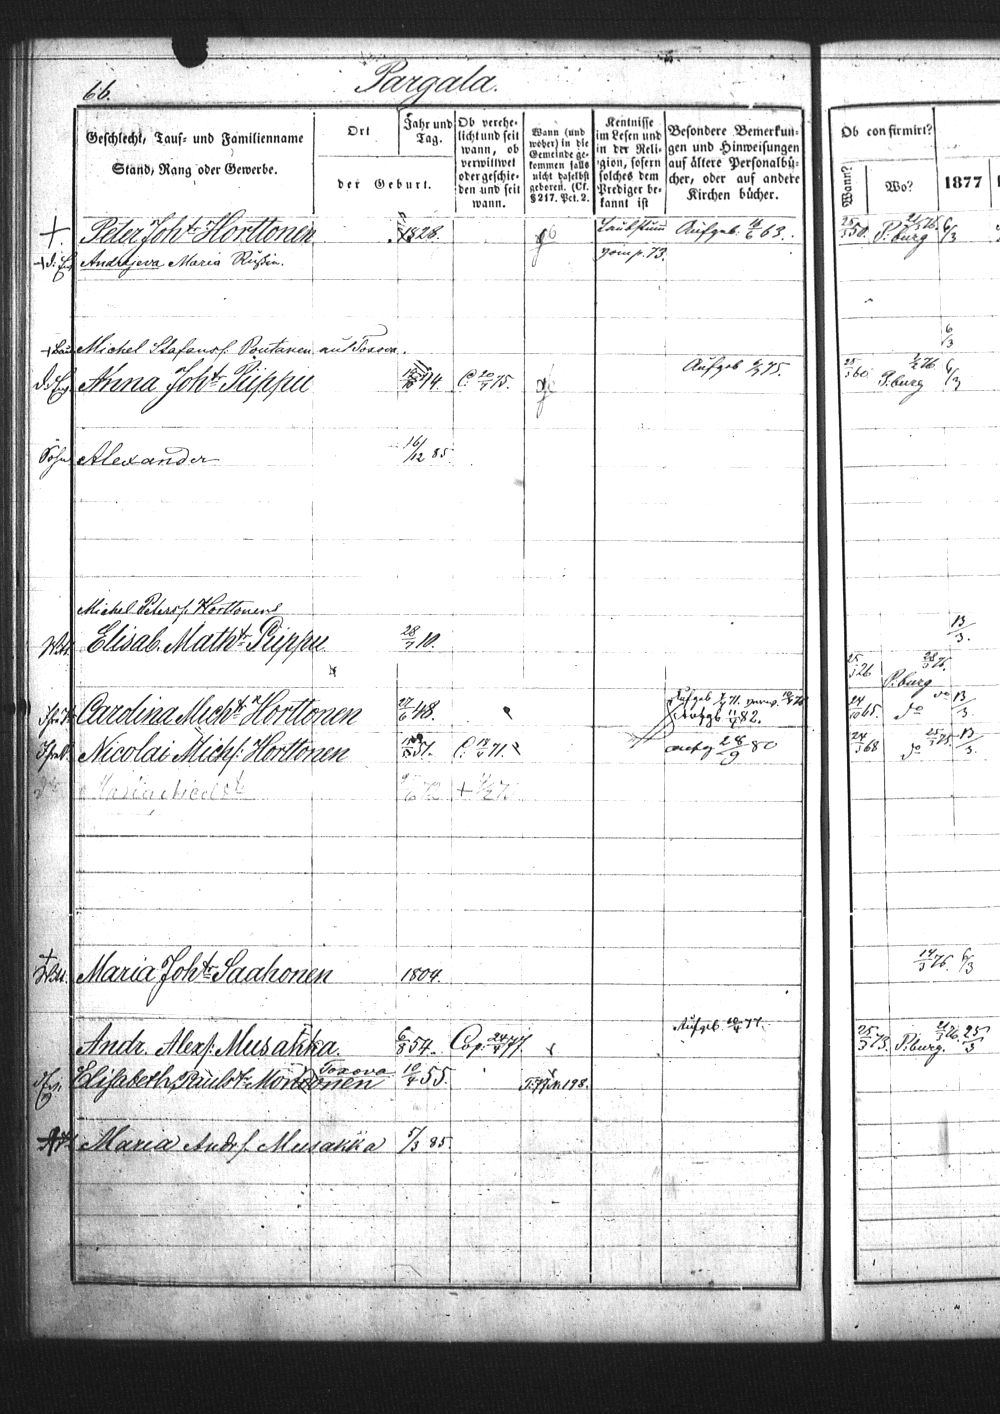 66.
Pargala.
Geschlecht, Tauf- und Familienname
Stand, Rang oder Gewerbe.
Ort
der Geburt.
Jahr und
Tag.
Ob verehe-
licht und seit
wann, ob
verwittwet
oder geschie-
den und seit
wann.
Wann (und
woher) in die
Gemeinde ge-
kommen falls
nicht daselbst
geboren. (Cf.
§ 217. Pct. 2.
Kentnisse
im Lesen und
in der Reli-
gion, sofern
solches dem
Prediger be-
kannt ist
Besondere Bemerkun-
gen und Hinweisungen
auf ältere Personalbü-
cher, oder auf andere
Kirchen bücher.
Ob confirmirt?
Wann?
Wo?
1877
+. Peter Joht. Horttonen 1828. Taubstum Aufgeb. 63. 25/3 50. P.burg 21/3 76. 6/3
Andrejeva Maria Rußin. 73.
Michel Stafanss. Pontanen aus Toxova. 6/3
Anna Joht. Piippu 44 C. 20/4 75. Aufgeb. 75. 25/3 60 P.burg 76. 6/3
Sohn Alexander 16/12 85.
Michel Peterss. Horttonens
Ww. Elisab. Matht. Piippu 28/7 10. 13/3.
25/3 26 P.burg 28/3 76.
Carolina Micht. Horttonen 27/6 48. Aufgeb. 71. 82. 24/10 65. do do 13/3.
Nicolai Michs. Horttonen 51. C. 71. 28/9 80 24/3 68 do 25/3 75. 13/3.
+ Ww. Maria Joht. Saahonen 1804. 14/3 76. 6/3
Andr. Alexs. Musakka. 6/8 54. Cop. 24/4 77. Aufgeb. 10/4 77. 25/3 73. P.burg. 21/3 76. 25/3
Elisabeth Paulst. Monttonen Toxova 10/4 55. 198.
Maria Andrs. Musakka 5/3 85.